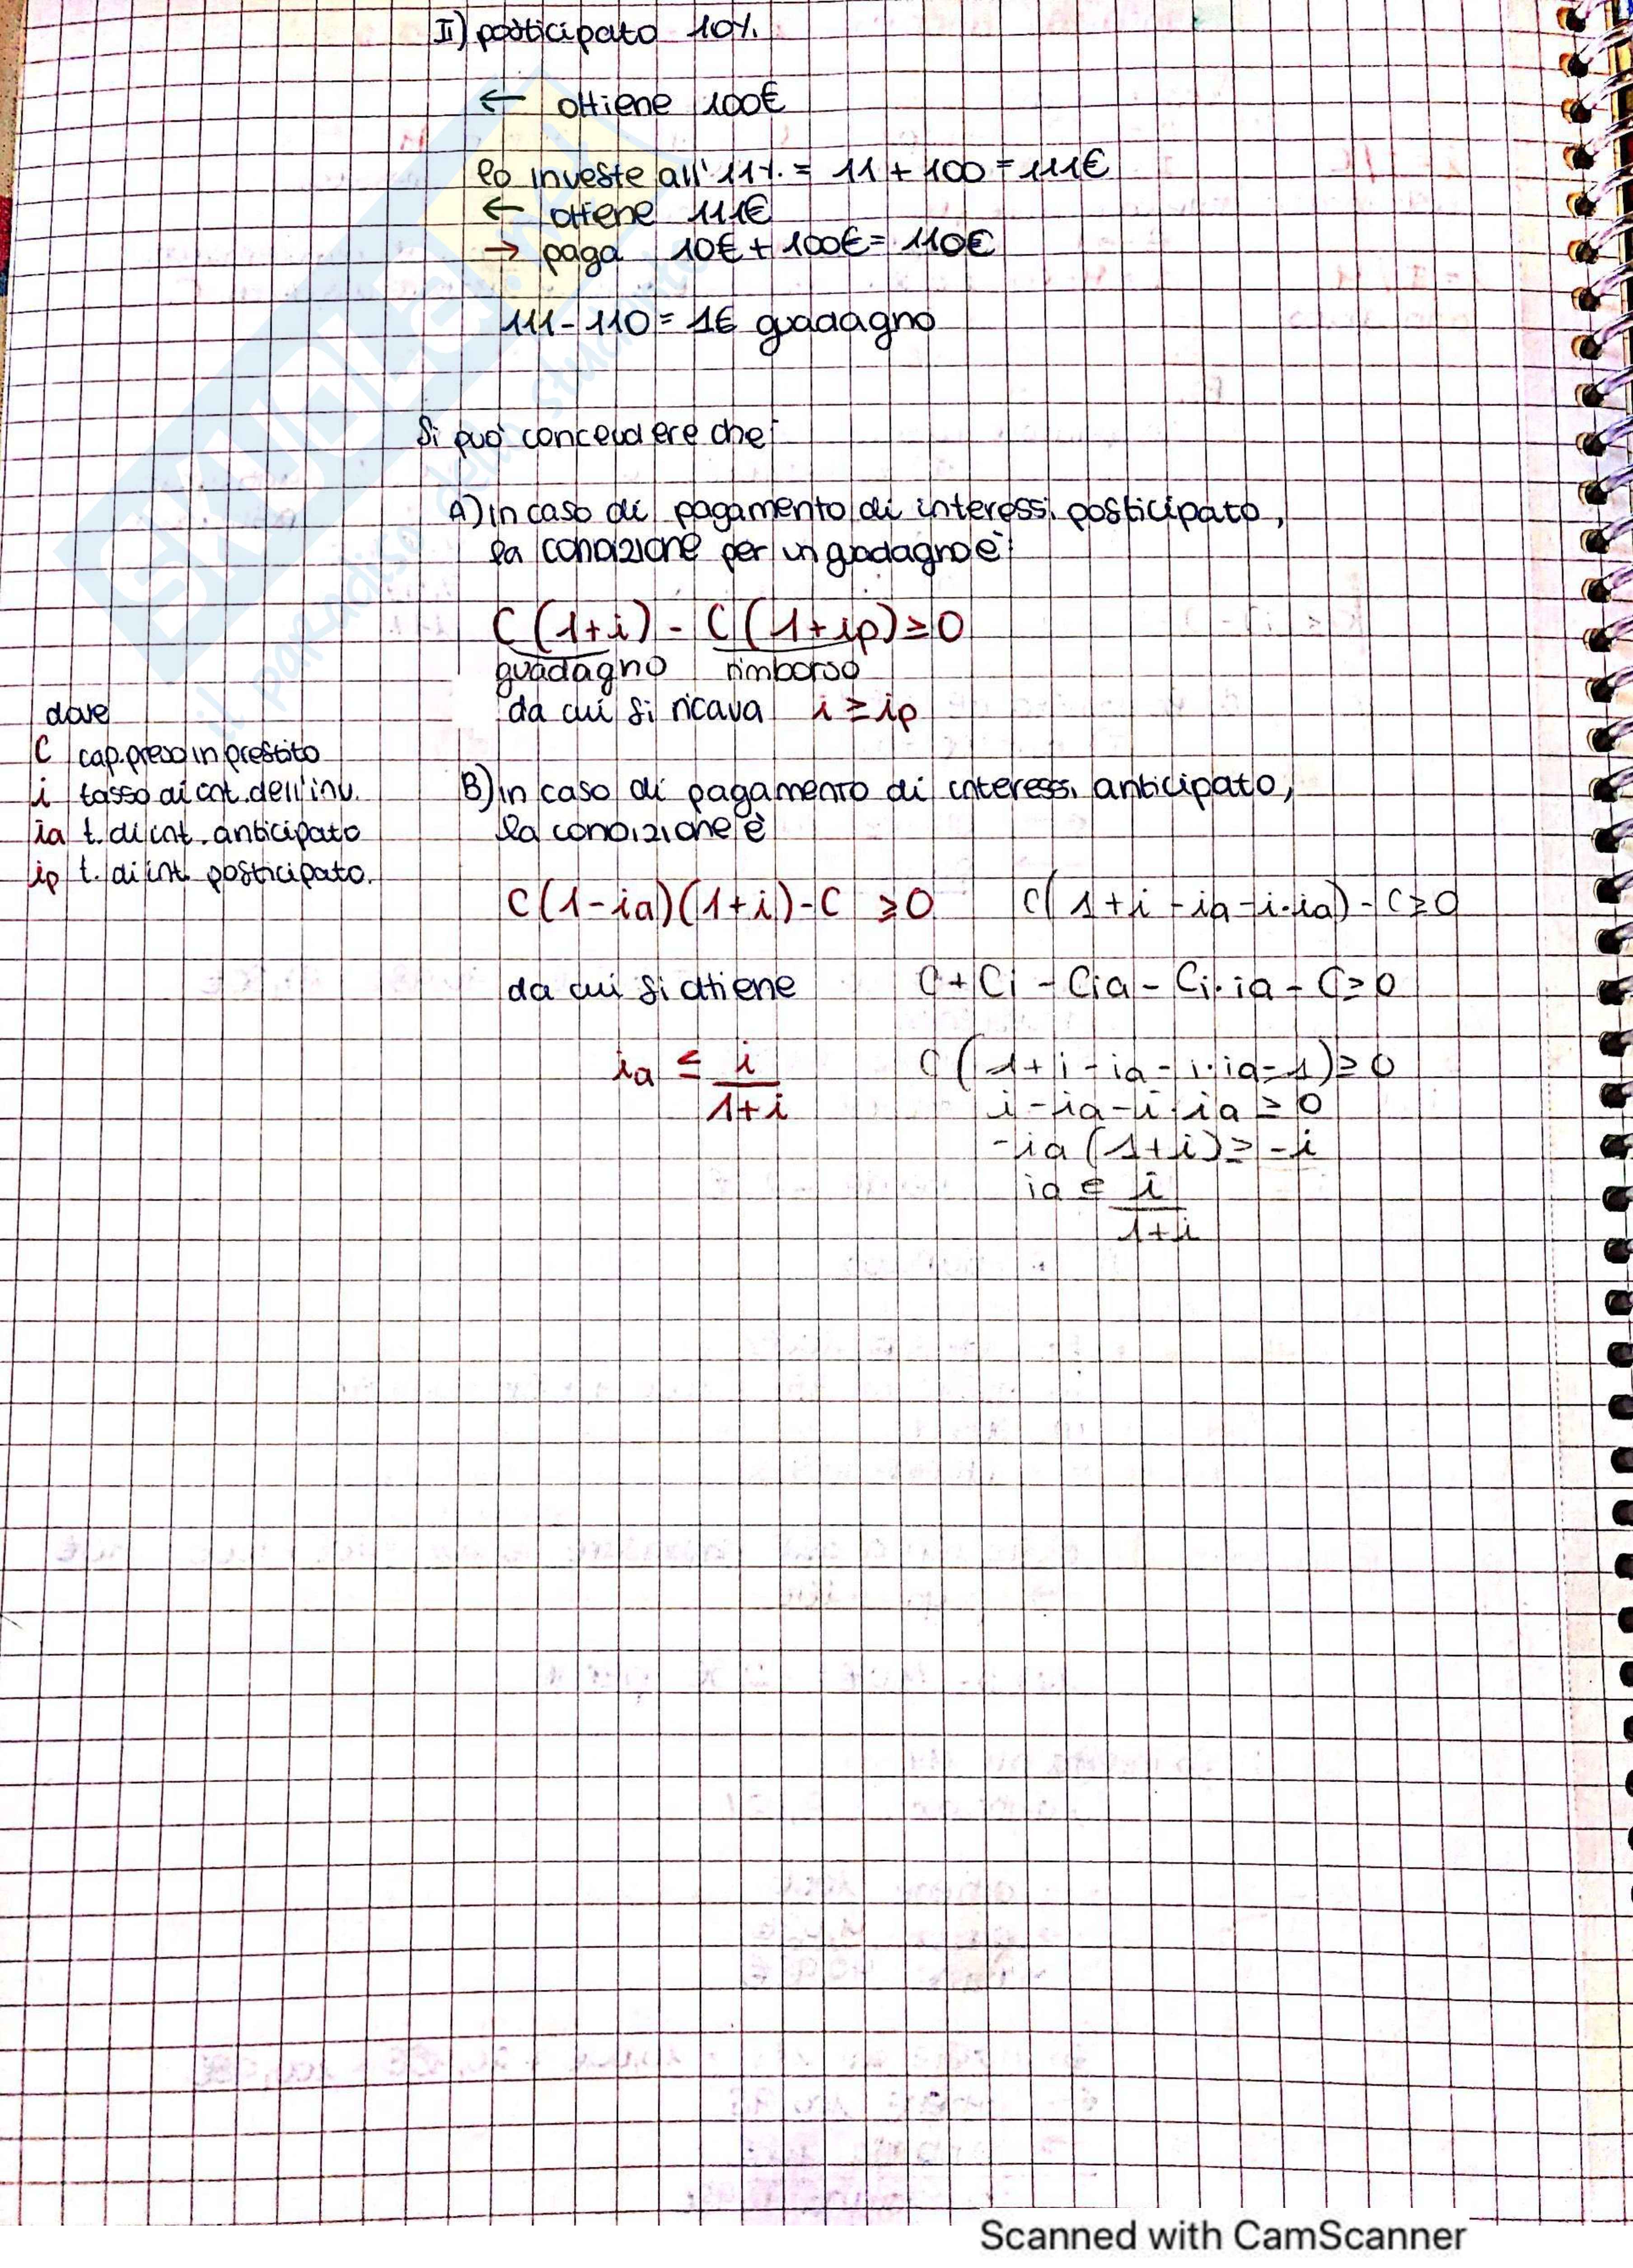 II) posticipato 10%.
← ottiene 100€
lo investe all'11% = 11 + 100 = 111€
← ottiene 111€
→ paga 10€ + 100€ = 110€
111 - 110 = 1€ guadagno
Si può concludere che:
A) in caso di pagamento di interessi posticipato,
la condizione per un guadagno è:
C (1+i) - C (1+ip) ≥ 0
guadagno rimborso
da cui si ricava i ≥ ip
dove
C cap. preso in prestito
i tasso di int. dell'inv.
ia t. di int. anticipato
ip t. di int. posticipato.
B) in caso di pagamento di interessi anticipato,
la condizione è
C (1-ia)(1+i) - C ≥ 0 C( 1+i -ia -i·ia) - C ≥ 0
da cui si ottiene C + Ci - Cia - Ci·ia - C ≥ 0
ia ≤ i/1+i C (1+i -ia -i·ia -1) ≥ 0
i -ia -i·ia ≥ 0
-ia (1+i) ≥ -i
ia ≤ i/1+i
SKUOLA.net
il paradiso dello studente
Scanned with CamScanner